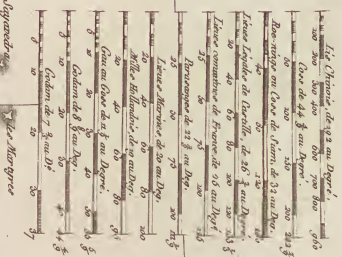 Lis Chinois, de 192 au Degré.
100 200 300 400 600 700 800 960
Coss de 44 4/9 au Degré.
50 100 150 200 222 2/9
Roe-nings ou Coss de Siam, de 32 au Deg.
40 80 120 160
Lieues Légales de Castille, de 26 2/3 au Degré.
20 40 60 80 100 133 1/3
Lieues communes de France, de 25 au Degré.
25 50 75 100 125
Parasanges de 22 2/9 au Deg.
25 50 75 100 111 1/9
Lieues Marines de 20 au Deg.
20 40 60 80 100
Milles Hollandois, de 19 au Deg.
20 40 60 80 95
Gau ou Coss de 11 1/9 au Degré.
5 10 20 30 40 55 5/9
Codam de 8 8/9 au Deg.
5 10 20 30 44 4/9
Codam de 7 2/5 au Dé
5 10 20 30 37
Sayavedra
les Martyres